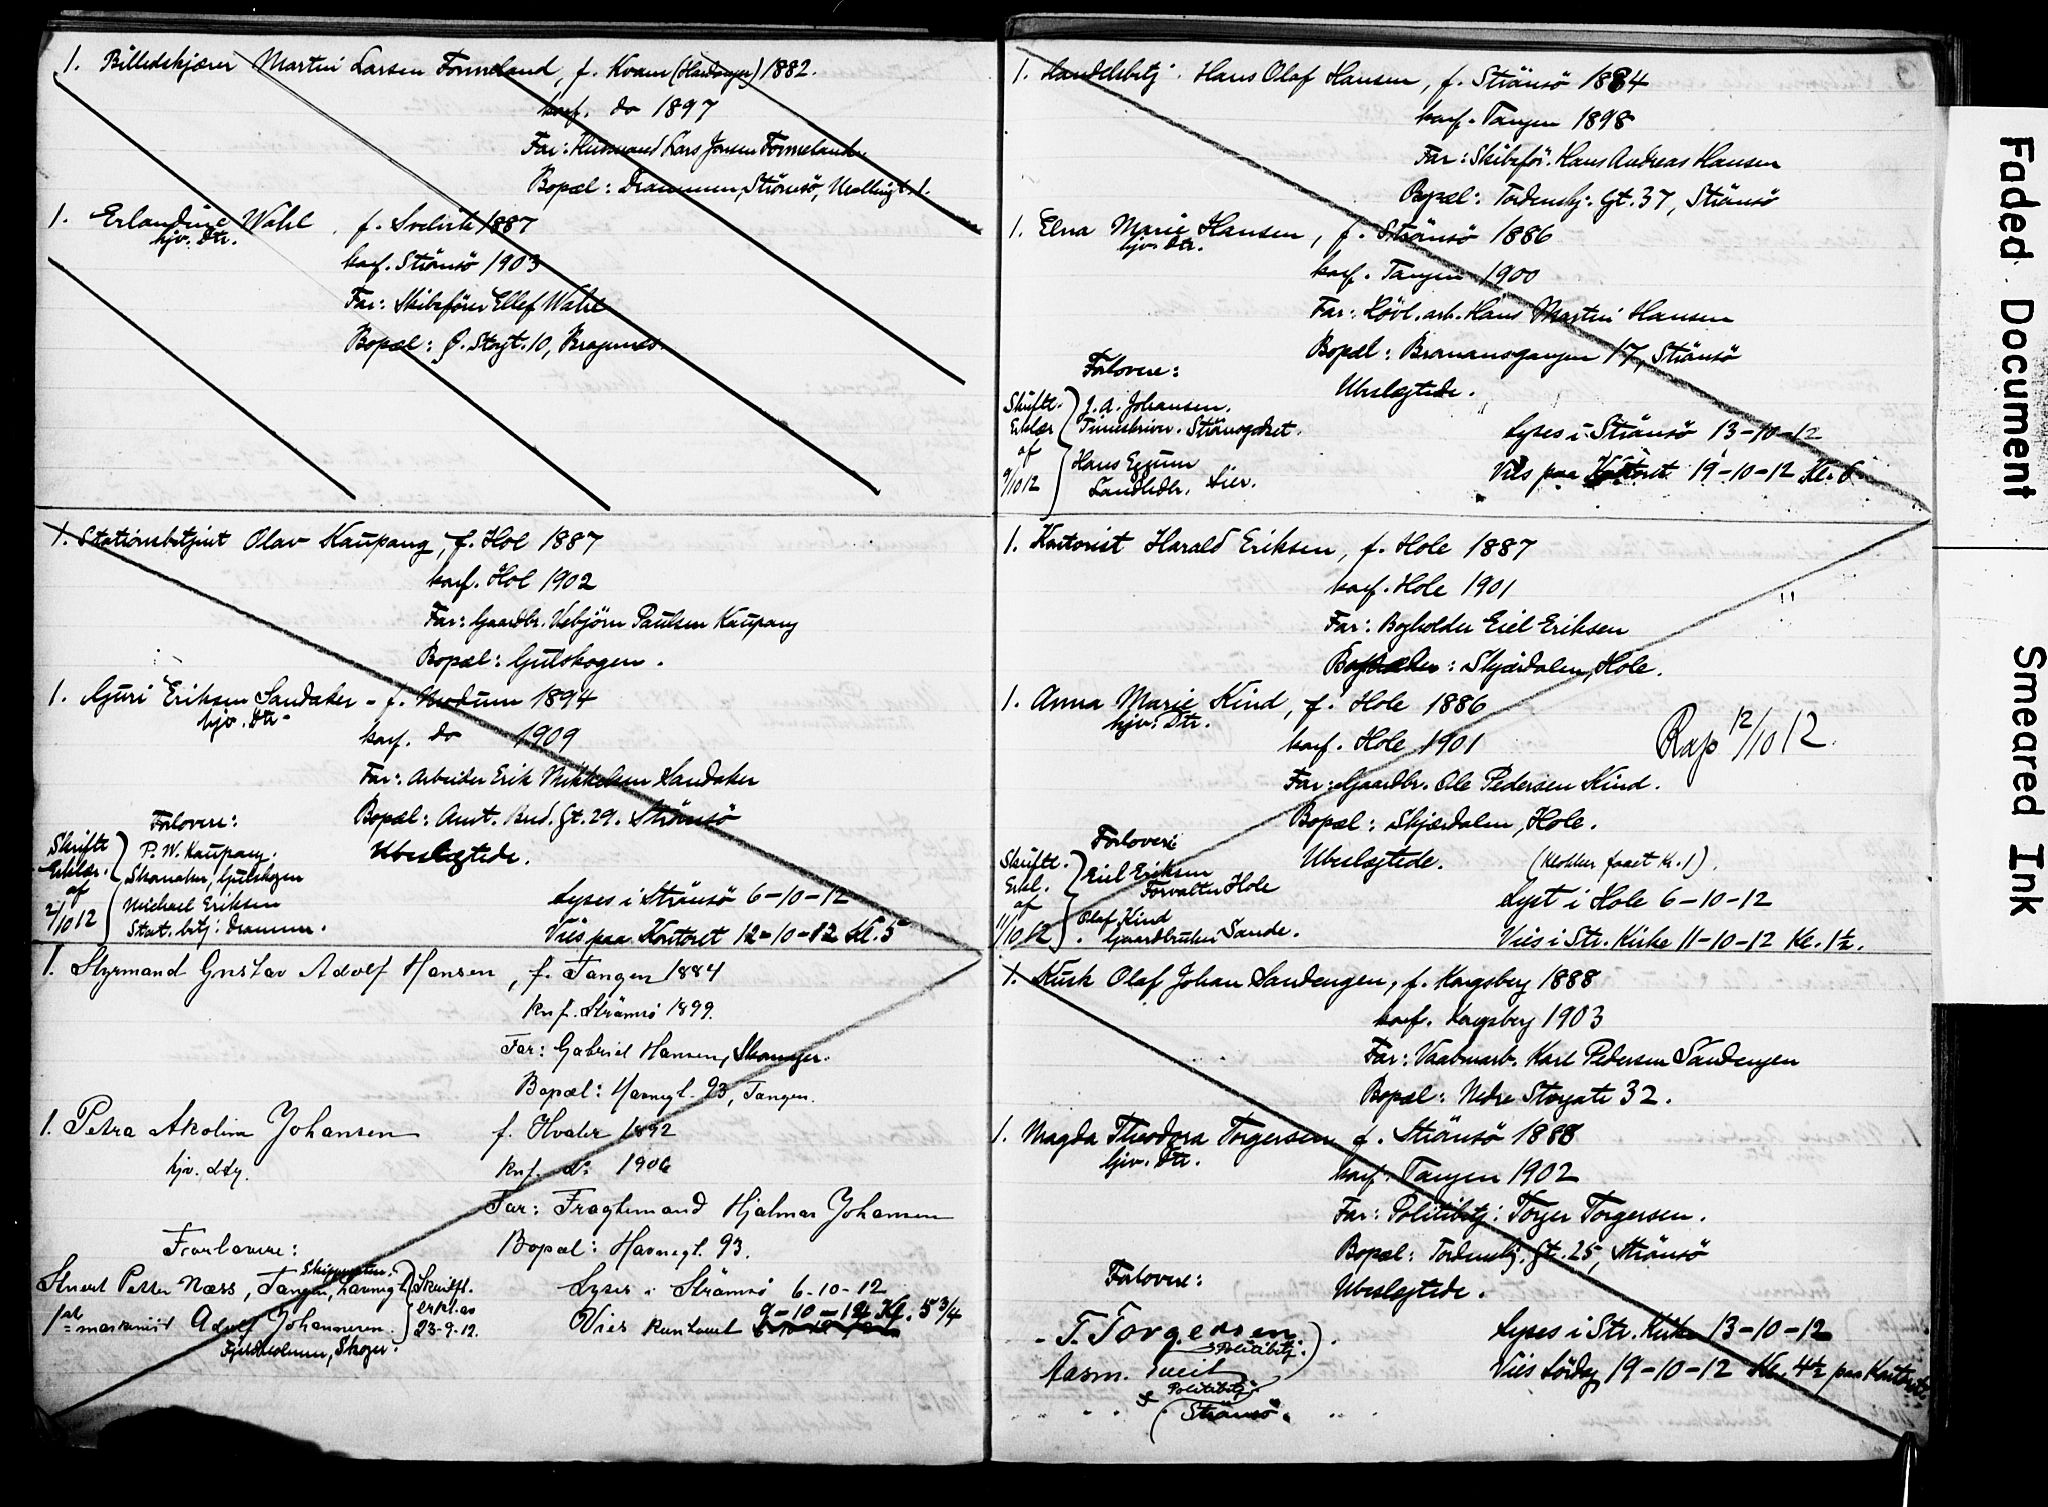 1. Billedskjærer Martin Larsen Tormeland, f. Kvam (Hardanger) 1882.
konf. do 1897
Far: Husmand Lars Jonsen Tormeland
Bopæl: Drammen, Strömsö,
1. Erlandine Wahl f. Svelvik 1887
hjv. Dtr.
konf. Strömsö 1903
Far: Skibsförer Ellef Wahl
Bopæl: Ø. Storgt. 10, Bragernes.
1. Stationsbetjent Olav Kaupang, f. Hol 1887
konf. Hol 1902
Far: Gaardbr. Vebjörn Paulsen Kaupang
Bopæl: Gulskogen.
1. Guri Eriksen Sandaker - f. Modum 1894
hjv. Dtr-
konf. do 1909
Far: Arbeider Erik Mikkelsen Sandaker
Bopæl: Amt. Bud. Gt. 29. Strömsö
Forlovere:
Ubeslægtede.
Skriftl P. W. Kaupang.
Erklær. Skomaker, Gulskogen
af Michael Eriksen
2/10 12 Stat. betj. Drammen.
Lyses i Strömsö 6-10-12
Vies paa Kontoret 12-10-12 Kl. 5
1. Styrmand Gustav Adolf Hansen, f. Tangen 1884
knf. Strömsö 1899.
Far: Gabriel Hansen,
Bopæl: Havnegt. 93, Tangen.
1. Petra Akolina Johansen f. Hvaler 1892
hjv. dtr. knf. do 1906
Far: Fragtemand Hjalmar Johansen
Forlovere:
Bopæl: Havnegt. 93.
Petter Næss, Tangen, Havnegt. Skriftl.
1ste maskinist Adolf Johannesen. erkl. av
Fjeldheimen, Skoger. 23-9-12.
Lyses i Strömsö 6-10-12
Vies kontoret 9-10-12 Kl. 5 3/4
1. Handelsbetj. Hans Olaf Hansen, f. Strömsö 1884
konf. Tangen 1898
Far: Skibsför. Hans Andreas Hansen
Bopæl: Tordenskj. Gt. 37, Strömsö
1. Elna Marie Hansen, f. Strömsö 1886
hjv. Dtr.
konf. Tangen 1900
Far: Hövl. arb. Hans Martin Hansen
Bopæl: Bromansgangen 17, Strömsö
Forlovere:
Ubeslægtede.
Skriftl. J. A. Johansen.
Erklær Timeskriver. Strömsgodset.
af Hans Eggum
9/10 12 Landhdlr. Lier.
Lyses i Strömsö 13-10-12
Vies paa Kontoret 19-10-12 Kl. 6
1. Kontorist Harald Eriksen, f. Hole 1887
konf. Hole 1901
Far: Bogholder Eiel Eriksen
Bopæl: Skjærdalen, Hole.
1. Anna Marie Kind, f. Hole 1886
hjv. Dtr.
konf. Hole 1901
Rap 12/10 12
Far: Gaardbr. Ole Pedersen Kind.
Bopæl: Skjærdalen, Hole.
Forlovere
Ubeslægtede. (Klokker faaet Kr. 1).
Skriftl. Eiel Eriksen
Erkl. Forvalter Hole
af Olaf Kind
11/10 12 Gaardbruker Sande.
Lyst i Hole 6-10-12
Vies i Str. Kirke 11-10-12 Kl. 1½.
1. Kusk Olaf Johan Sandengen, f. Kongsberg 1888
konf. Kongsberg 1903
Far: Vaabenarb. Karl Pedersen Sandengen
Bopæl: Nedre Storgate 32.
1. Magda Theodora Torgersen f. Strömsö 1888
hjv. Dtr.
konf. Tangen 1902
Far: Politibetj: Torger Torgersen.
Bopæl: Tordenskj. Gt. 25, Strömsö
Forlovere:
Ubeslægtede.
T. Torgersen
Politibetj.
Aasm. Tveit
Politibetj.
Strömsö.
Lyses i Str. Kirke 13-10-12
Vies Lördag 19-10-12 Kl. 4½ paa Kontoret
Faded Document
Smeared Ink